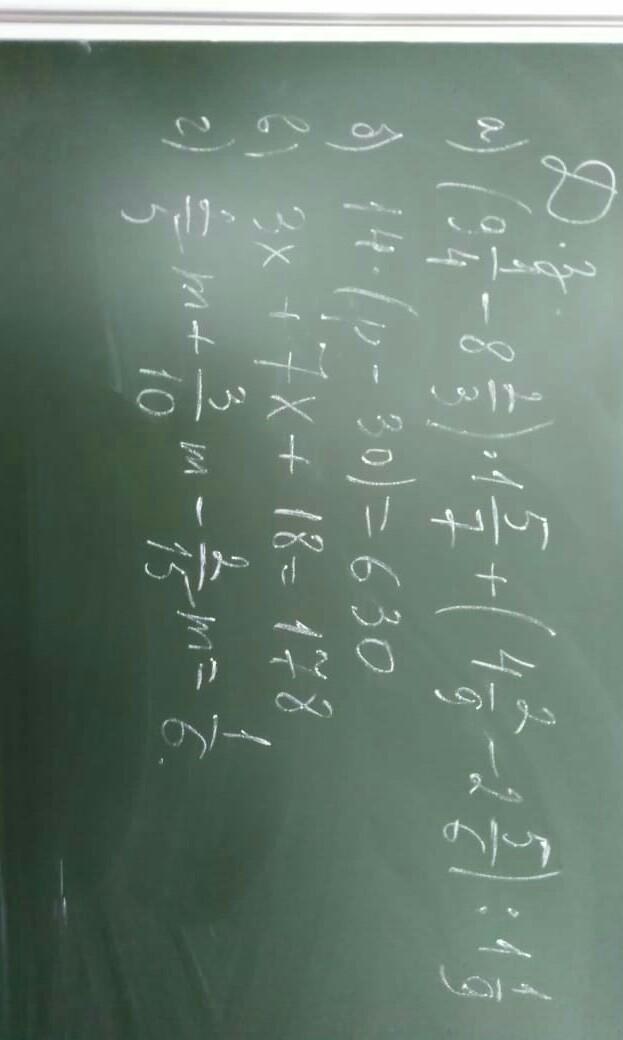 D. з.
а) (9 1/4 - 8 2/3) · 1 5/7 + (4 2/9 - 2 5/6) : 1 1/9
б) 14 · (p - 30) = 630
в) 3x + 7x + 18 = 178
г) 2/5 m + 3/10 m - 2/15 m = 1/6.